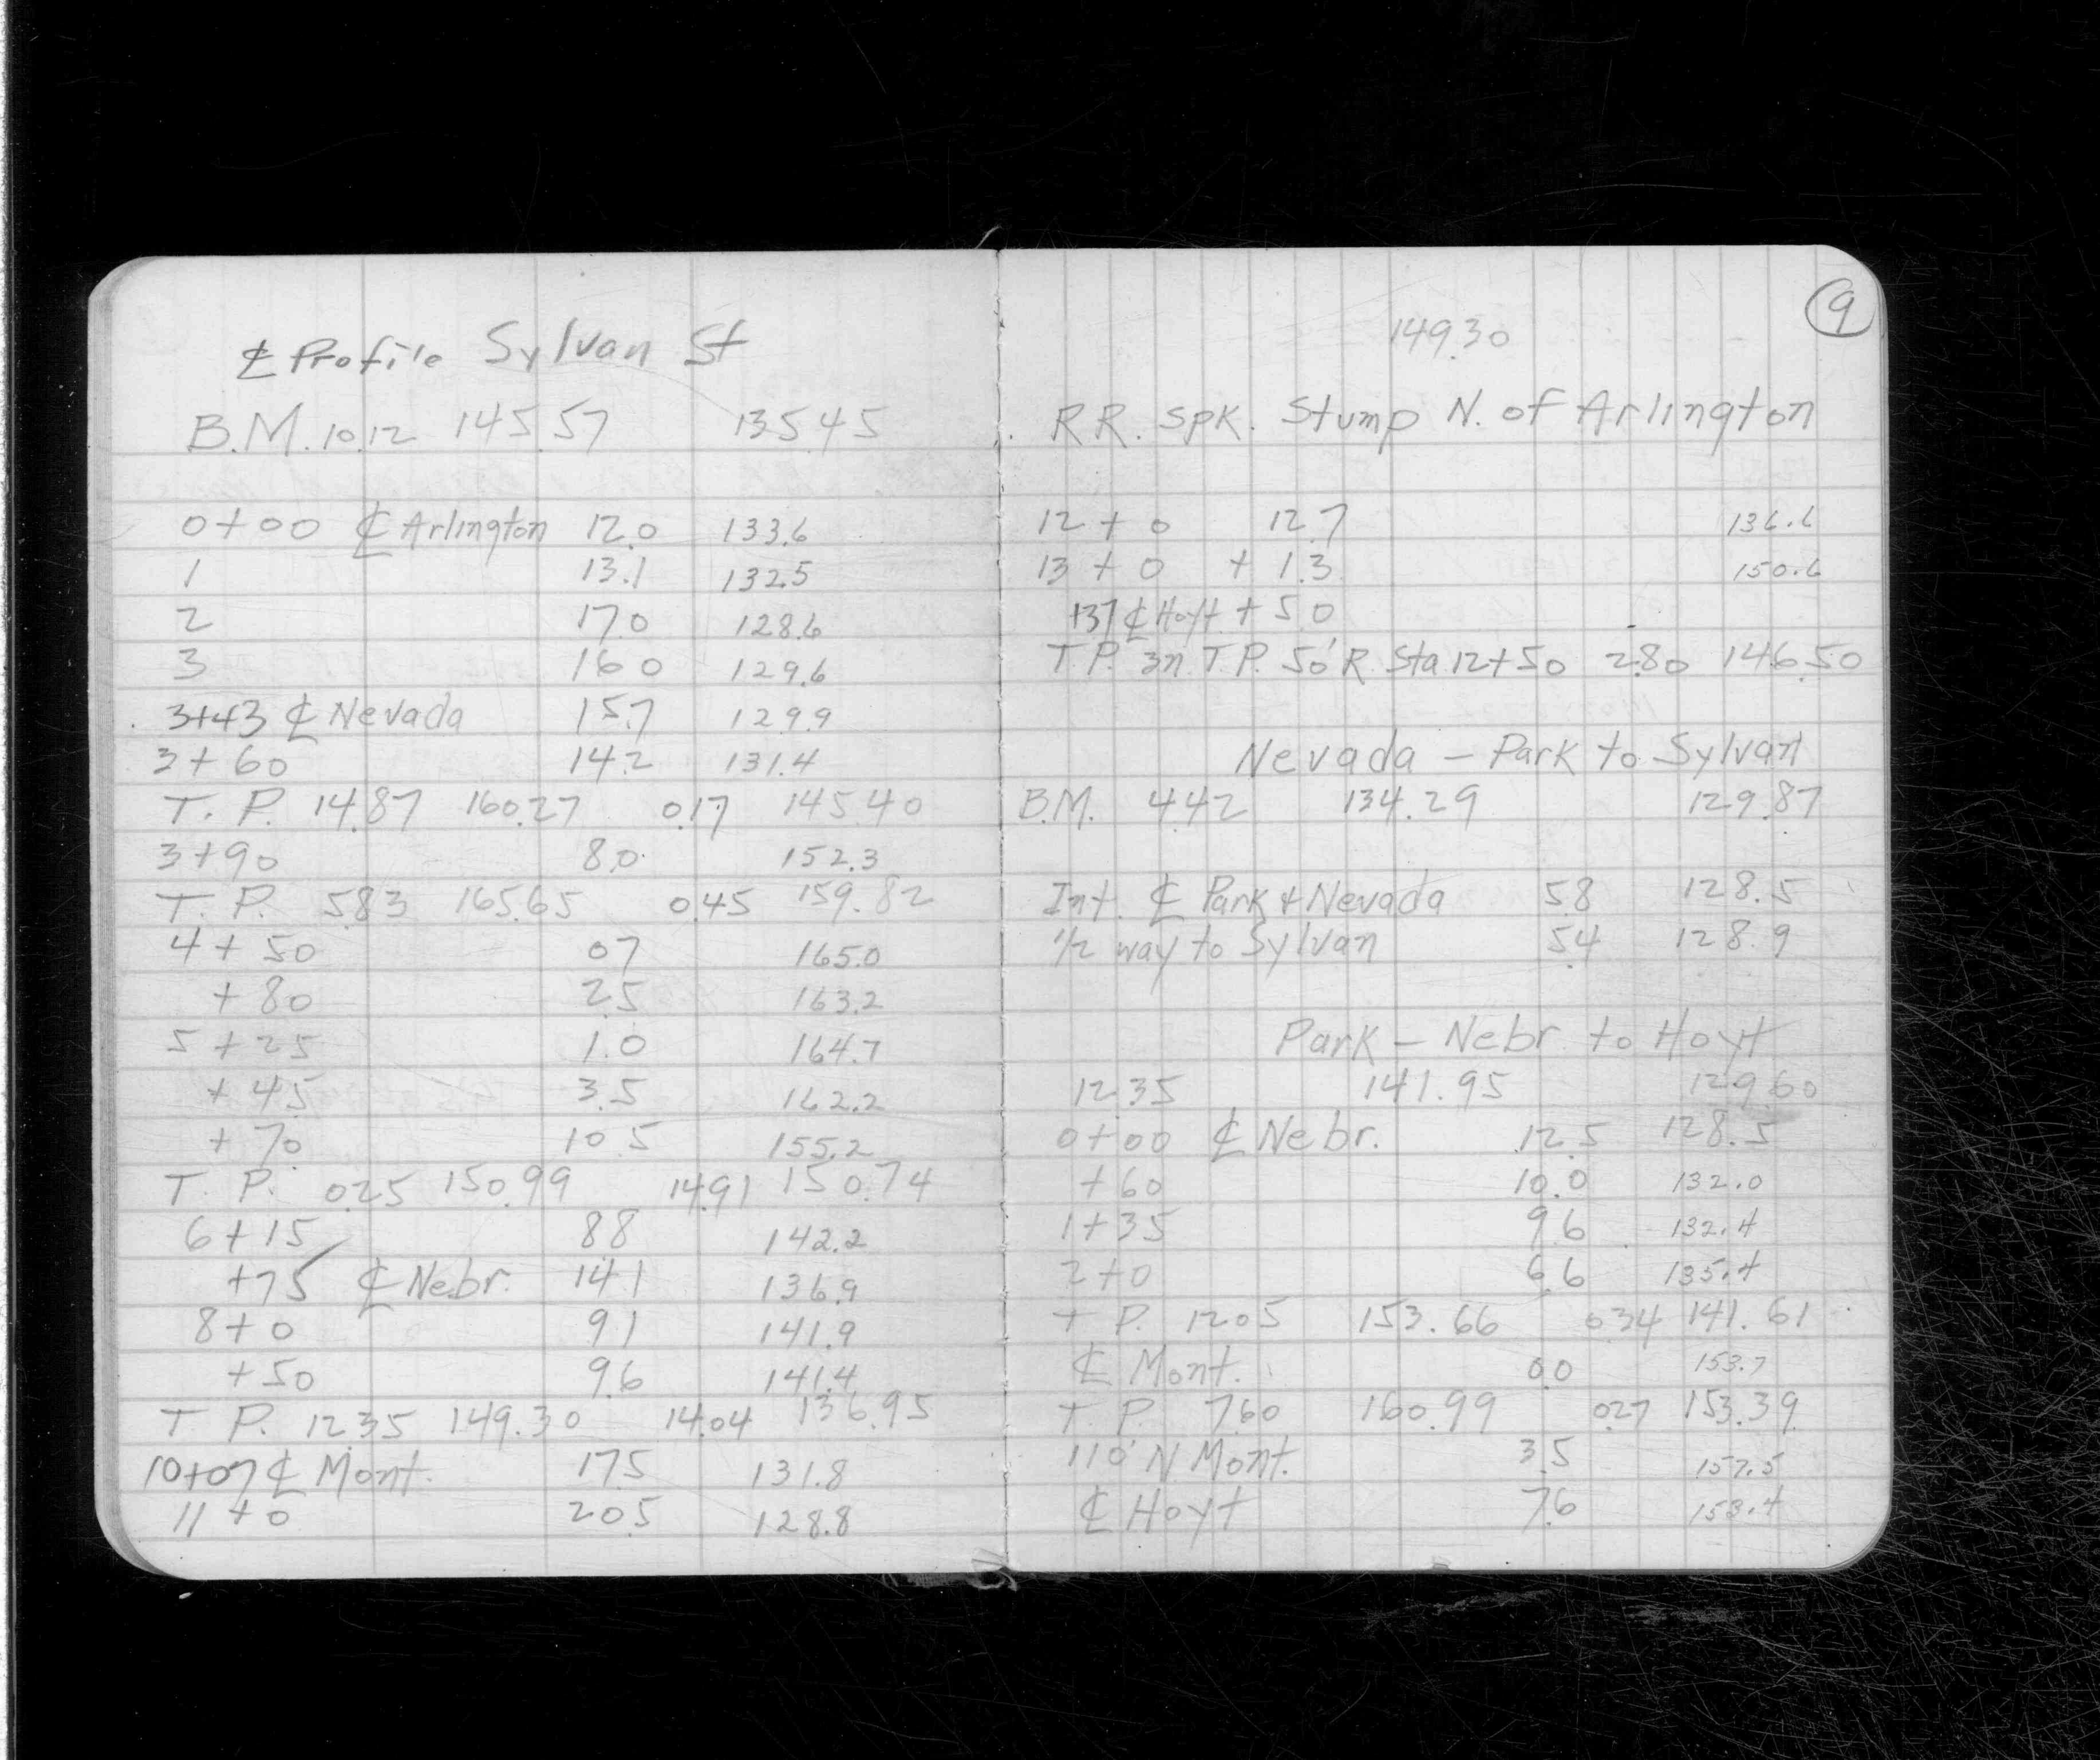 ℄ Profile Sylvan St
B.M. 10.12 145.57 135.45
0+00 ℄ Arlington 12.0 133.6
1 13.1 132.5
2 17.0 128.6
3 16.0 129.6
3+43 ℄ Nevada 15.7 129.9
3+60 14.2 131.4
T. P. 14.87 160.27 0.17 145.40
3+90 8.0 152.3
T. P. 5.83 165.65 0.45 159.82
4+50 0.7 165.0
+80 2.5 163.2
5+25 1.0 164.7
+45 3.5 162.2
+70 10.5 155.2
T. P. 0.25 150.99 14.91 150.74
6+15 8.8 142.2
+75 ℄ Nebr. 14.1 136.9
8+0 9.1 141.9
+50 9.6 141.4
T. P. 12.35 149.30 14.04 136.95
10+07 ℄ Mont. 17.5 131.8
11+0 20.5 128.8
9
149.30
RR. Spk. Stump N. of Arlington
12+0 12.7 136.6
13+0 +1.3 150.6
+37 ℄ Hoyt +5.0
T.P. T.P. 50' R. Sta. 12+50 2.80 146.50
Nevada – Park to Sylvan
B.M. 4.42 134.29 129.87
Int. ℄ Park + Nevada 5.8 128.5
1/2 way to Sylvan 5.4 128.9
Park – Nebr. to Hoyt
12.35 141.95 129.60
0+00 ℄ Nebr. 12.5 128.5
+60 10.0 132.0
1+35 9.6 132.4
2+0 6.6 135.4
T P. 12.05 153.66 0.34 141.61
℄ Mont. 0.0 153.7
T. P. 7.60 160.99 0.27 153.39
110' N Mont. 3.5 157.5
℄ Hoyt 7.6 153.4